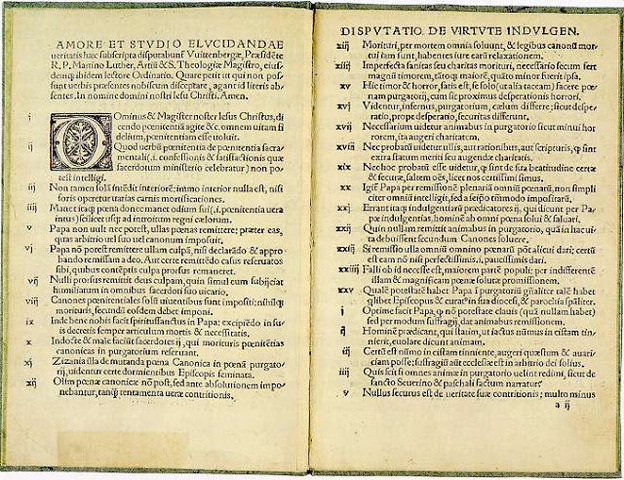 AMORE ET STVDIO ELVCIDANDAE
ueritatis hæc subscripta disputabunť Vuittenbergæ, Præsidẽte
R. P. Martino Luther, Artiũ & S. Theologiæ Magistro, eius-
demq; ibidem lectore Ordinatio. Quare petit ut qui non pos-
sunt uerbis præsentes nobiscum disceptare, agant id literis ab-
sentes. In nomine domini nostri Iesu Christi. Amen.
i DOminus & Magister noster Iesus Christus, di-
cendo pœnitentiã agite &c. omnem uitam fi-
delium, pœnitentiam esse uoluit.
ij Quod uerbũ pœnitentia de pœnitentia sacra-
mentali (.i. confessionis & satisfactionis quæ
sacerdotum ministerio celebratur) non po-
test intelligi.
iij Non tamen solã intẽdit interiorẽ; immo interior nulla est, nisi
foris operetur uarias carnis mortificationes.
iiij Manet itaq; pœna donec manet odium sui, (.i. pœnitentia uera
intus) scilicet usq; ad introitum regni cælorum.
v Papa non uult nec potest, ullas pœnas remittere; præter eas,
quas arbitrio uel suo uel canonum imposuit.
vj Papa nõ potest remittere ullam culpã, nisi declarãdo & appro
bando remissam a deo. Aut certe remittẽdo casus reseruatos
sibi, quibus contẽptis culpa prorsus remaneret.
vij Nulli prorsus remittit deus culpam, quin simul eum subijciat
humiliatum in omnibus sacerdoti suo uicario.
viij Canones pœnitentiales solũ uiuentibus sunt impositi; nihilq;
morituris, secundũ eosdem debet imponi.
ix Inde bene nobis facit spiritussanctus in Papa: excipiẽdo in su-
is decretis semper articulum mortis & necessitatis.
x Indocte & male faciũt sacerdotes ij, qui morituris pœnitẽtias
canonicas in purgatorium reseruant.
xj Zizania illa de mutanda pœna Canonica in pœnã purgato-
rij, uidentur certe dormientibus Episcopis seminata.
xij Olim pœnæ canonicæ nõ post, sed ante absolutionem impo-
nebantur, tanq̃ tentamenta ueræ contritionis.
DISPVTATIO DE VIRTVTE INDVLGEN.
xiij Morituri, per mortem omnia soluunt, & legibus canonũ mor-
tui iam sunt, habentes iure earũ relaxationem.
xiiij Imperfecta sanitas seu charitas morituri, necessario secum fert
magnũ timorem, tãtoq; maiorẽ, quãto minor fuerit ipsa.
xv Hic timor & horror, satis est, se solo (ut alia taceam) facere pœ-
nam purgatorij, cum sit proximus desperationis horrori.
xvj Videntur, infernus, purgatorium, cælum differre; sicut despe-
ratio, prope desperatio, securitas differunt.
xvij Necessarium uidetur animabus in purgatorio sicut minui hor-
rorem, ita augeri charitatem.
xviij Nec probatũ uidetur ullis, aut rationibus, aut scripturis, q̃ sint
extra statum meriti seu augendæ charitatis.
xix Nec hoc probatũ esse uidetur, q̃ sint de sua beatitudine certæ
& securæ, saltem oẽs, licet nos certissimi simus.
xx Igiť Papa per remissionẽ plenariã omniũ pœnarũ, non simpli
citer omniũ intelligit, sed a seipõ tm̃modo impositarũ.
xxj Errant itaq; indulgentiarũ prædicatores ij, qui dicunt per Pa-
pæ indulgentias, hominẽ ab omni pœna solui & saluari.
xxij Quin nullam remittit animabus in purgatorio, quã in hac ui-
ta debuissent secundum Canones soluere.
xxiij Si remissio ulla omniũ omnino pœnarũ põt alicui dari; certũ
est eam nõ nisi perfectissimis .i. paucissimis dari.
xxiiij Falli ob id necesse est, maiorem partẽ populi; per indifferentẽ
illam & magnificam pœnæ solutæ promissionem.
xxv Qualẽ potestatẽ habet Papa ĩ purgatoriũ gñaliter talẽ habet
q̃libet Episcopus & curať in sua diocesi, & parochia spãliter.
i Optime facit Papa, q̃ nõ potestate clauis (quã nullam habet)
sed per modum suffragij, dat animabus remissionem.
ij Hominẽ prædicant, qui statim, ut iactus nũmus in cistam tin-
nierit, euolare dicunt animam.
iij Certũ est nũmo in cistam tinniente, augeri quæstum & auari-
ciam posse; suffragiũ aũt ecclesiæ est in arbitrio dei solius.
iiij Quis scit si omnes animæ in purgatorio uelint redimi, sicut de
sancto Seuerino & paschali factum narratur.
v Nullus securus est de ueritate suæ contritionis; multo minus
a ij